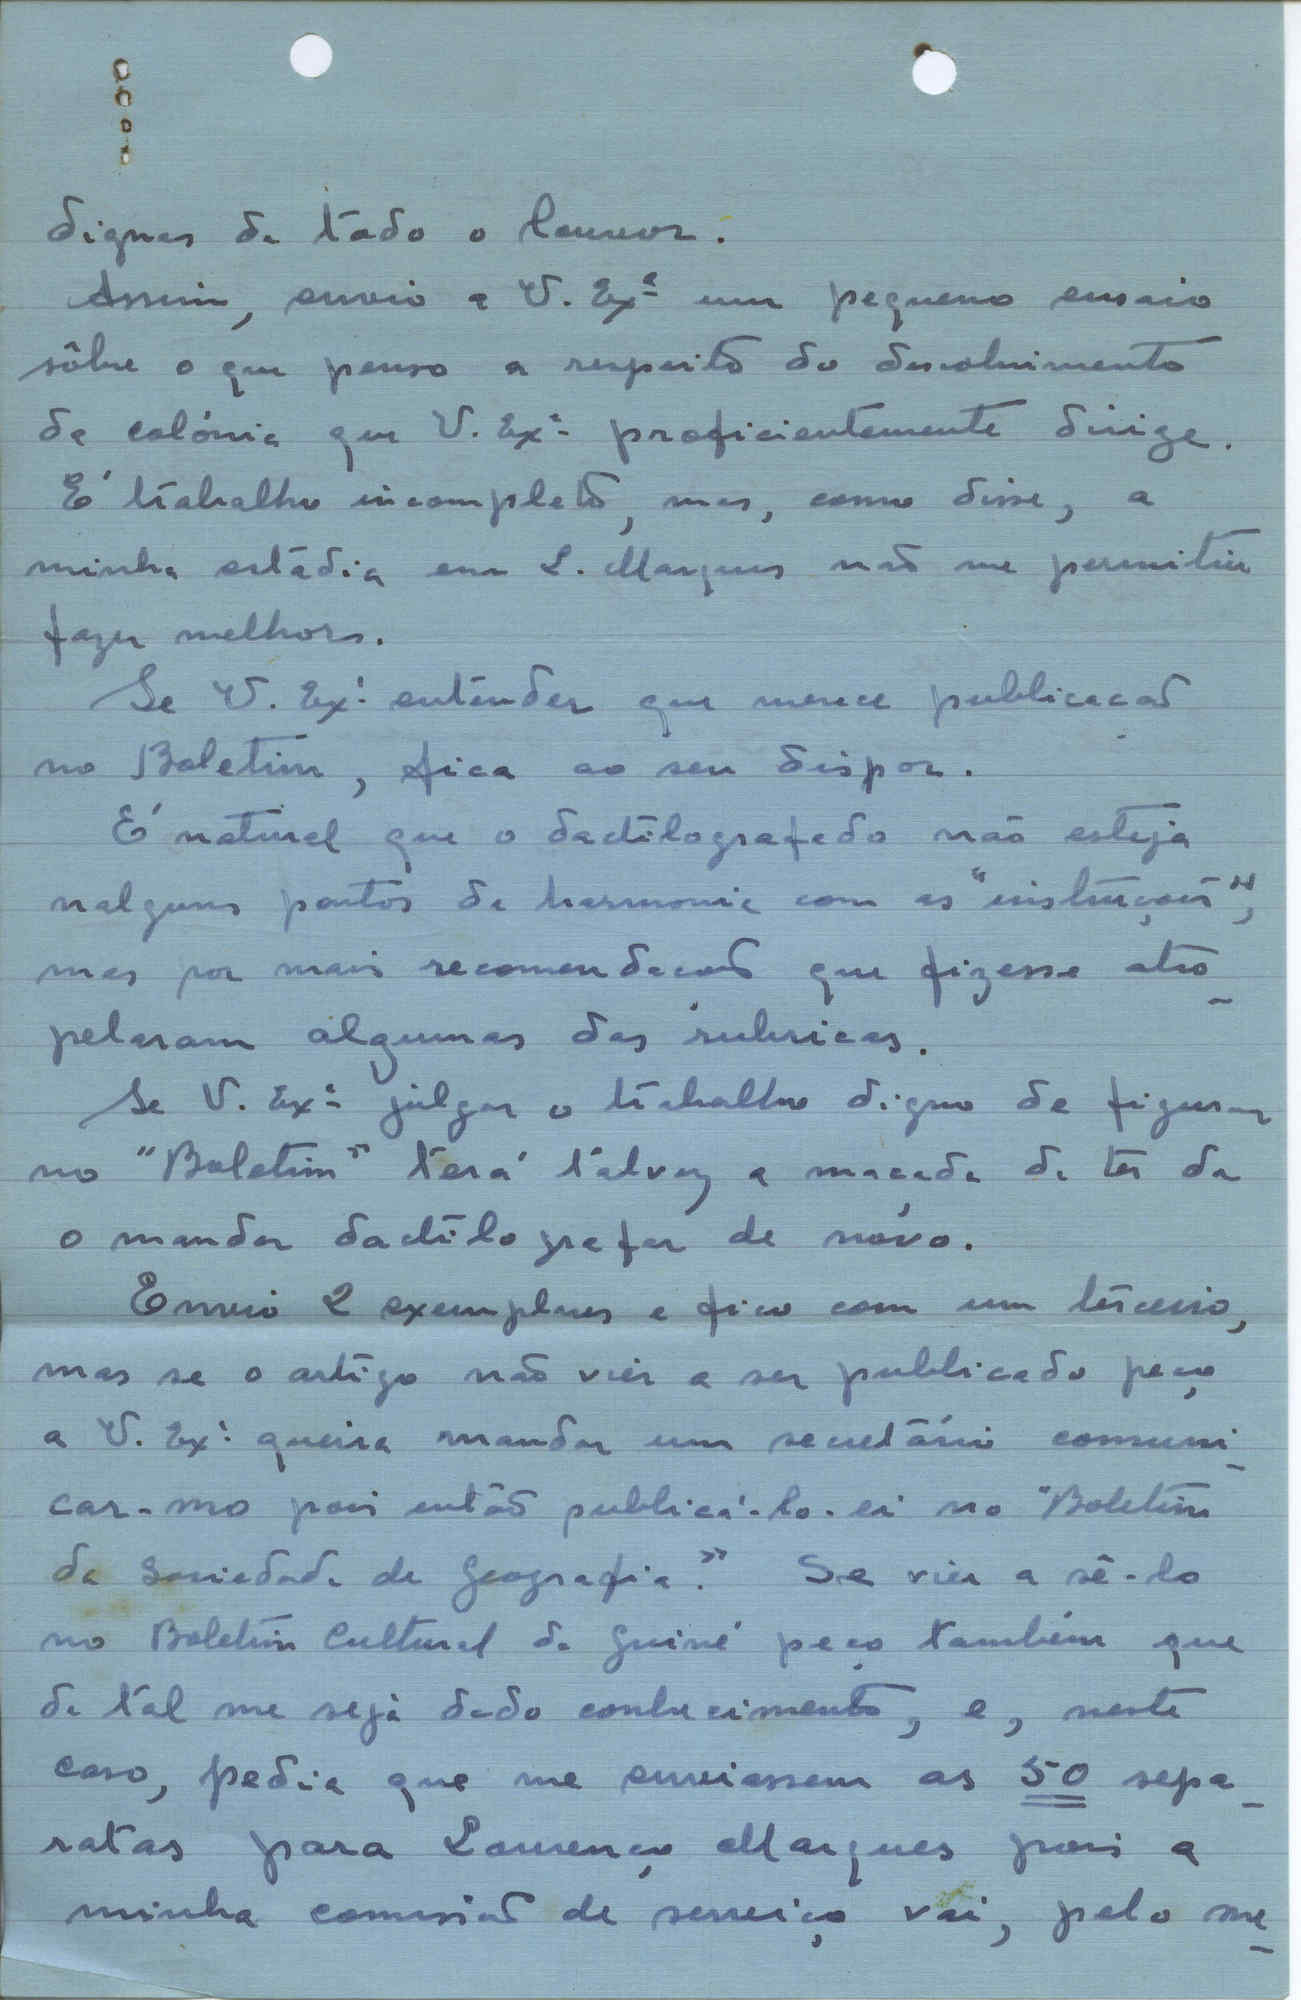 dignas de todo o louvor.
Assim, envio a V. Exª um pequeno ensaio
sôbre o que penso a respeito do descobrimento
da colónia que V. Exª proficientemente dirige.
É trabalho incompleto, mas, como disse, a
minha estádia em L. Marques não me permitiu
fazer melhor.
Se V. Exª entender que merece publicação
no Boletim, fica ao seu dispor.
É natural que o dactilografado não esteja
nalguns pontos de harmonia com as "instruções",
mas por mais recomendações que fizesse atro-
pelaram algumas das rubricas.
Se V. Exª julgar o trabalho digno de figurar
no "Boletim" terá talvez a maçada de ter de
o mandar dactilografar de novo.
Envio 2 exemplares e fico com um terceiro,
mas se o artigo não vier a ser publicado peço
a V. Exª queira mandar um secretário comuni-
car-mo pois então publicá-lo-ei no "Boletim
da Sociedade de Geografia". Se vier a sê-lo
no Boletim Cultural da Guiné peço também que
de tal me seja dado conhecimento, e, neste
caso, pedia que me enviassem as 50 sepa-
ratas para Lourenço Marques pois a
minha comissão de serviço vai, pelo me-